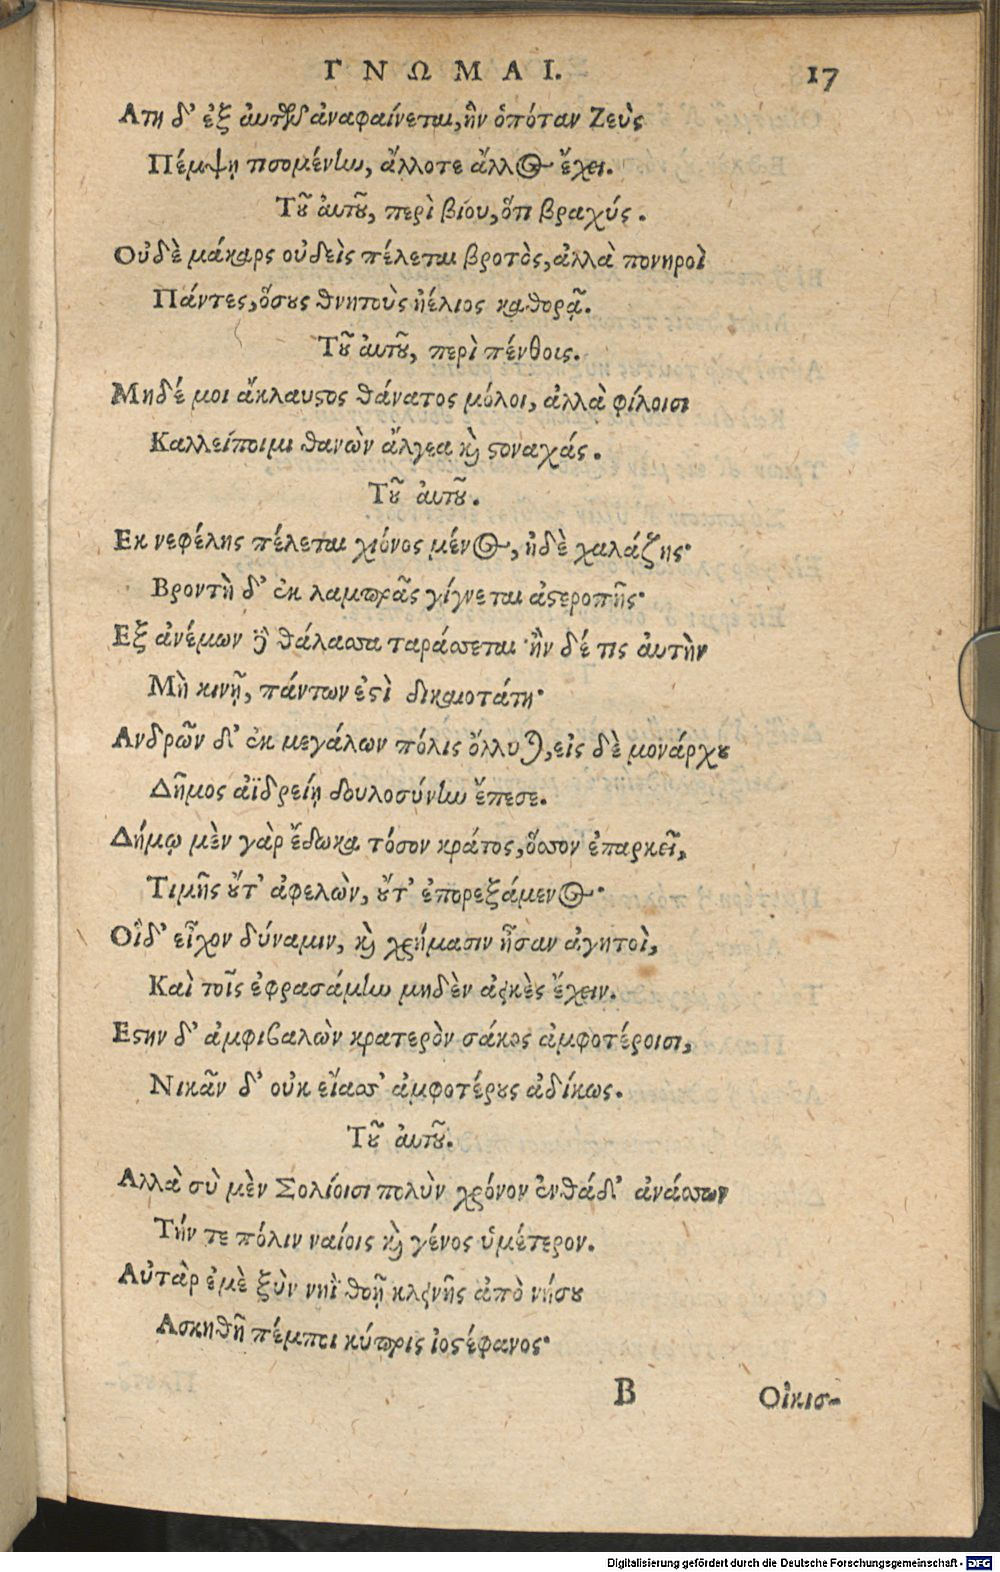 ΓΝΩΜΑΙ. 17
Ατη δ' ἐξ ἀυτῶν ἀναφαίνεται, ἣν ὁπόταν Ζεὺς
Πέμψῃ τισομένην, ἄλλοτε ἄλλος ἔχει.
Τοῦ ἀυτοῦ, περὶ βίου, ὅτι βραχύς.
Οὐδὲ μάκαρς οὐδεὶς πέλεται βροτὸς, ἀλλὰ πονηροὶ
Πάντες, ὅσους θνητοὺς ἠέλιος καθορᾷ.
Τοῦ ἀυτοῦ, περὶ πένθοις.
Μηδέ μοι ἄκλαυστος θάνατος μόλοι, ἀλλὰ φίλοισι
Καλλείποιμι θανὼν ἄλγεα καὶ στοναχάς.
Τοῦ ἀυτοῦ.
Εκ νεφέλης πέλεται χιόνος μένος, ἠδὲ χαλάζης·
Βροντὴ δ' ἐκ λαμπρᾶς γίγνεται ἀστεροπῆς·
Εξ ἀνέμων δὲ θάλασσα ταράσσεται· ἢν δέ τις ἀυτὴν
Μὴ κινῇ, πάντων ἐστὶ δικαιοτάτη·
Ανδρῶν δ' ἐκ μεγάλων πόλις ὄλλυται, εἰς δὲ μονάρχου
Δῆμος ἀϊδρείῃ δουλοσύνην ἔπεσε.
Δήμῳ μὲν γὰρ ἔδωκα τόσον κράτος, ὅσσον ἐπαρκεῖ,
Τιμῆς οὔτ' ἀφελὼν, οὔτ' ἐπορεξάμενος·
Οἳ δ' εἶχον δύναμιν, καὶ χρήμασιν ἦσαν ἀγητοὶ,
Καὶ τοῖς ἐφρασάμην μηδὲν ἀεικὲς ἔχειν.
Εστην δ' ἀμφιβαλὼν κρατερὸν σάκος ἀμφοτέροισι,
Νικᾶν δ' οὐκ εἴασσ' ἀμφοτέρους ἀδίκως.
Τοῦ ἀυτοῦ.
Αλλὰ σὺ μὲν Σολίοισι πολὺν χρόνον ἐνθάδ' ἀνάσσων
Τήν τε πόλιν ναίοις καὶ γένος ὑμέτερον.
Αὐτὰρ ἐμὲ ξὺν νηῒ θοῇ κλεινῆς ἀπὸ νήσου
Ασκηθῆ πέμποι κύπρις ἰοστέφανος·
B Οἰκισ-
Digitalisierung gefördert durch die Deutsche Forschungsgemeinschaft - DFG